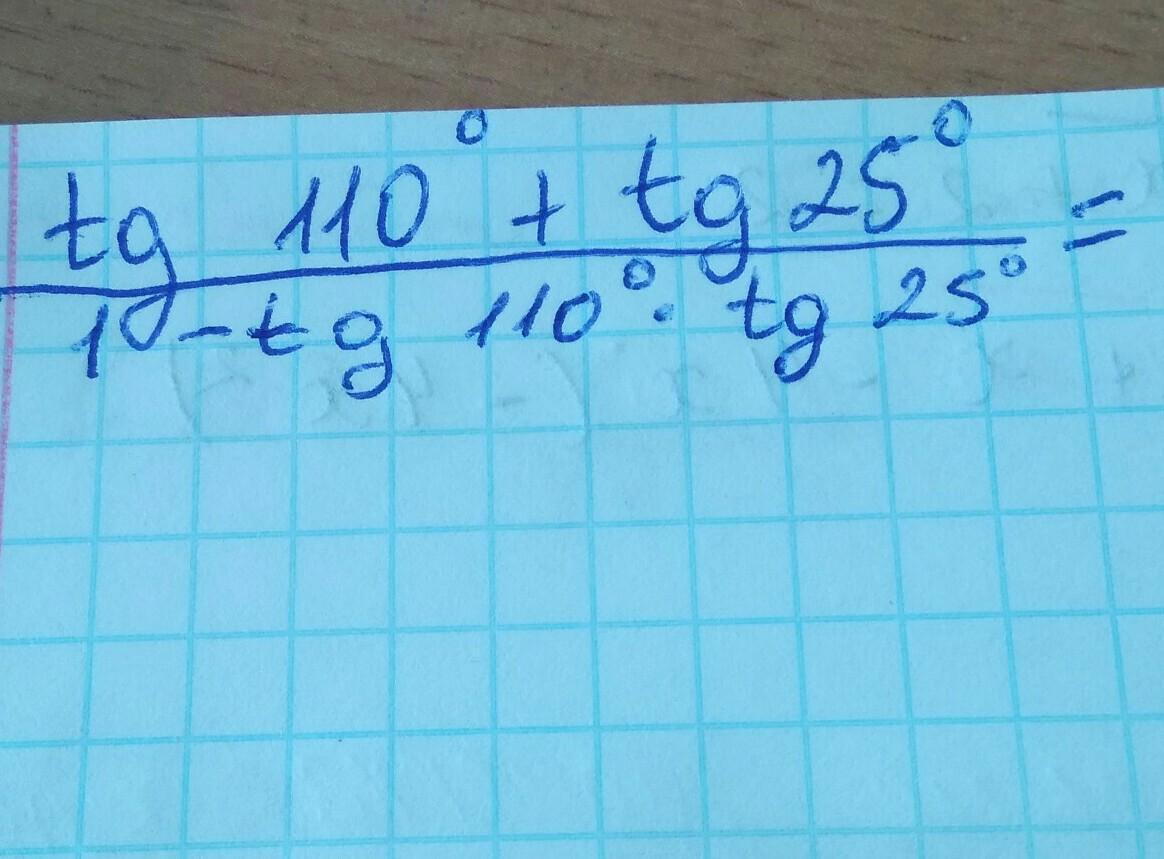 tg 110° + tg 25° =
1 - tg 110° · tg 25°